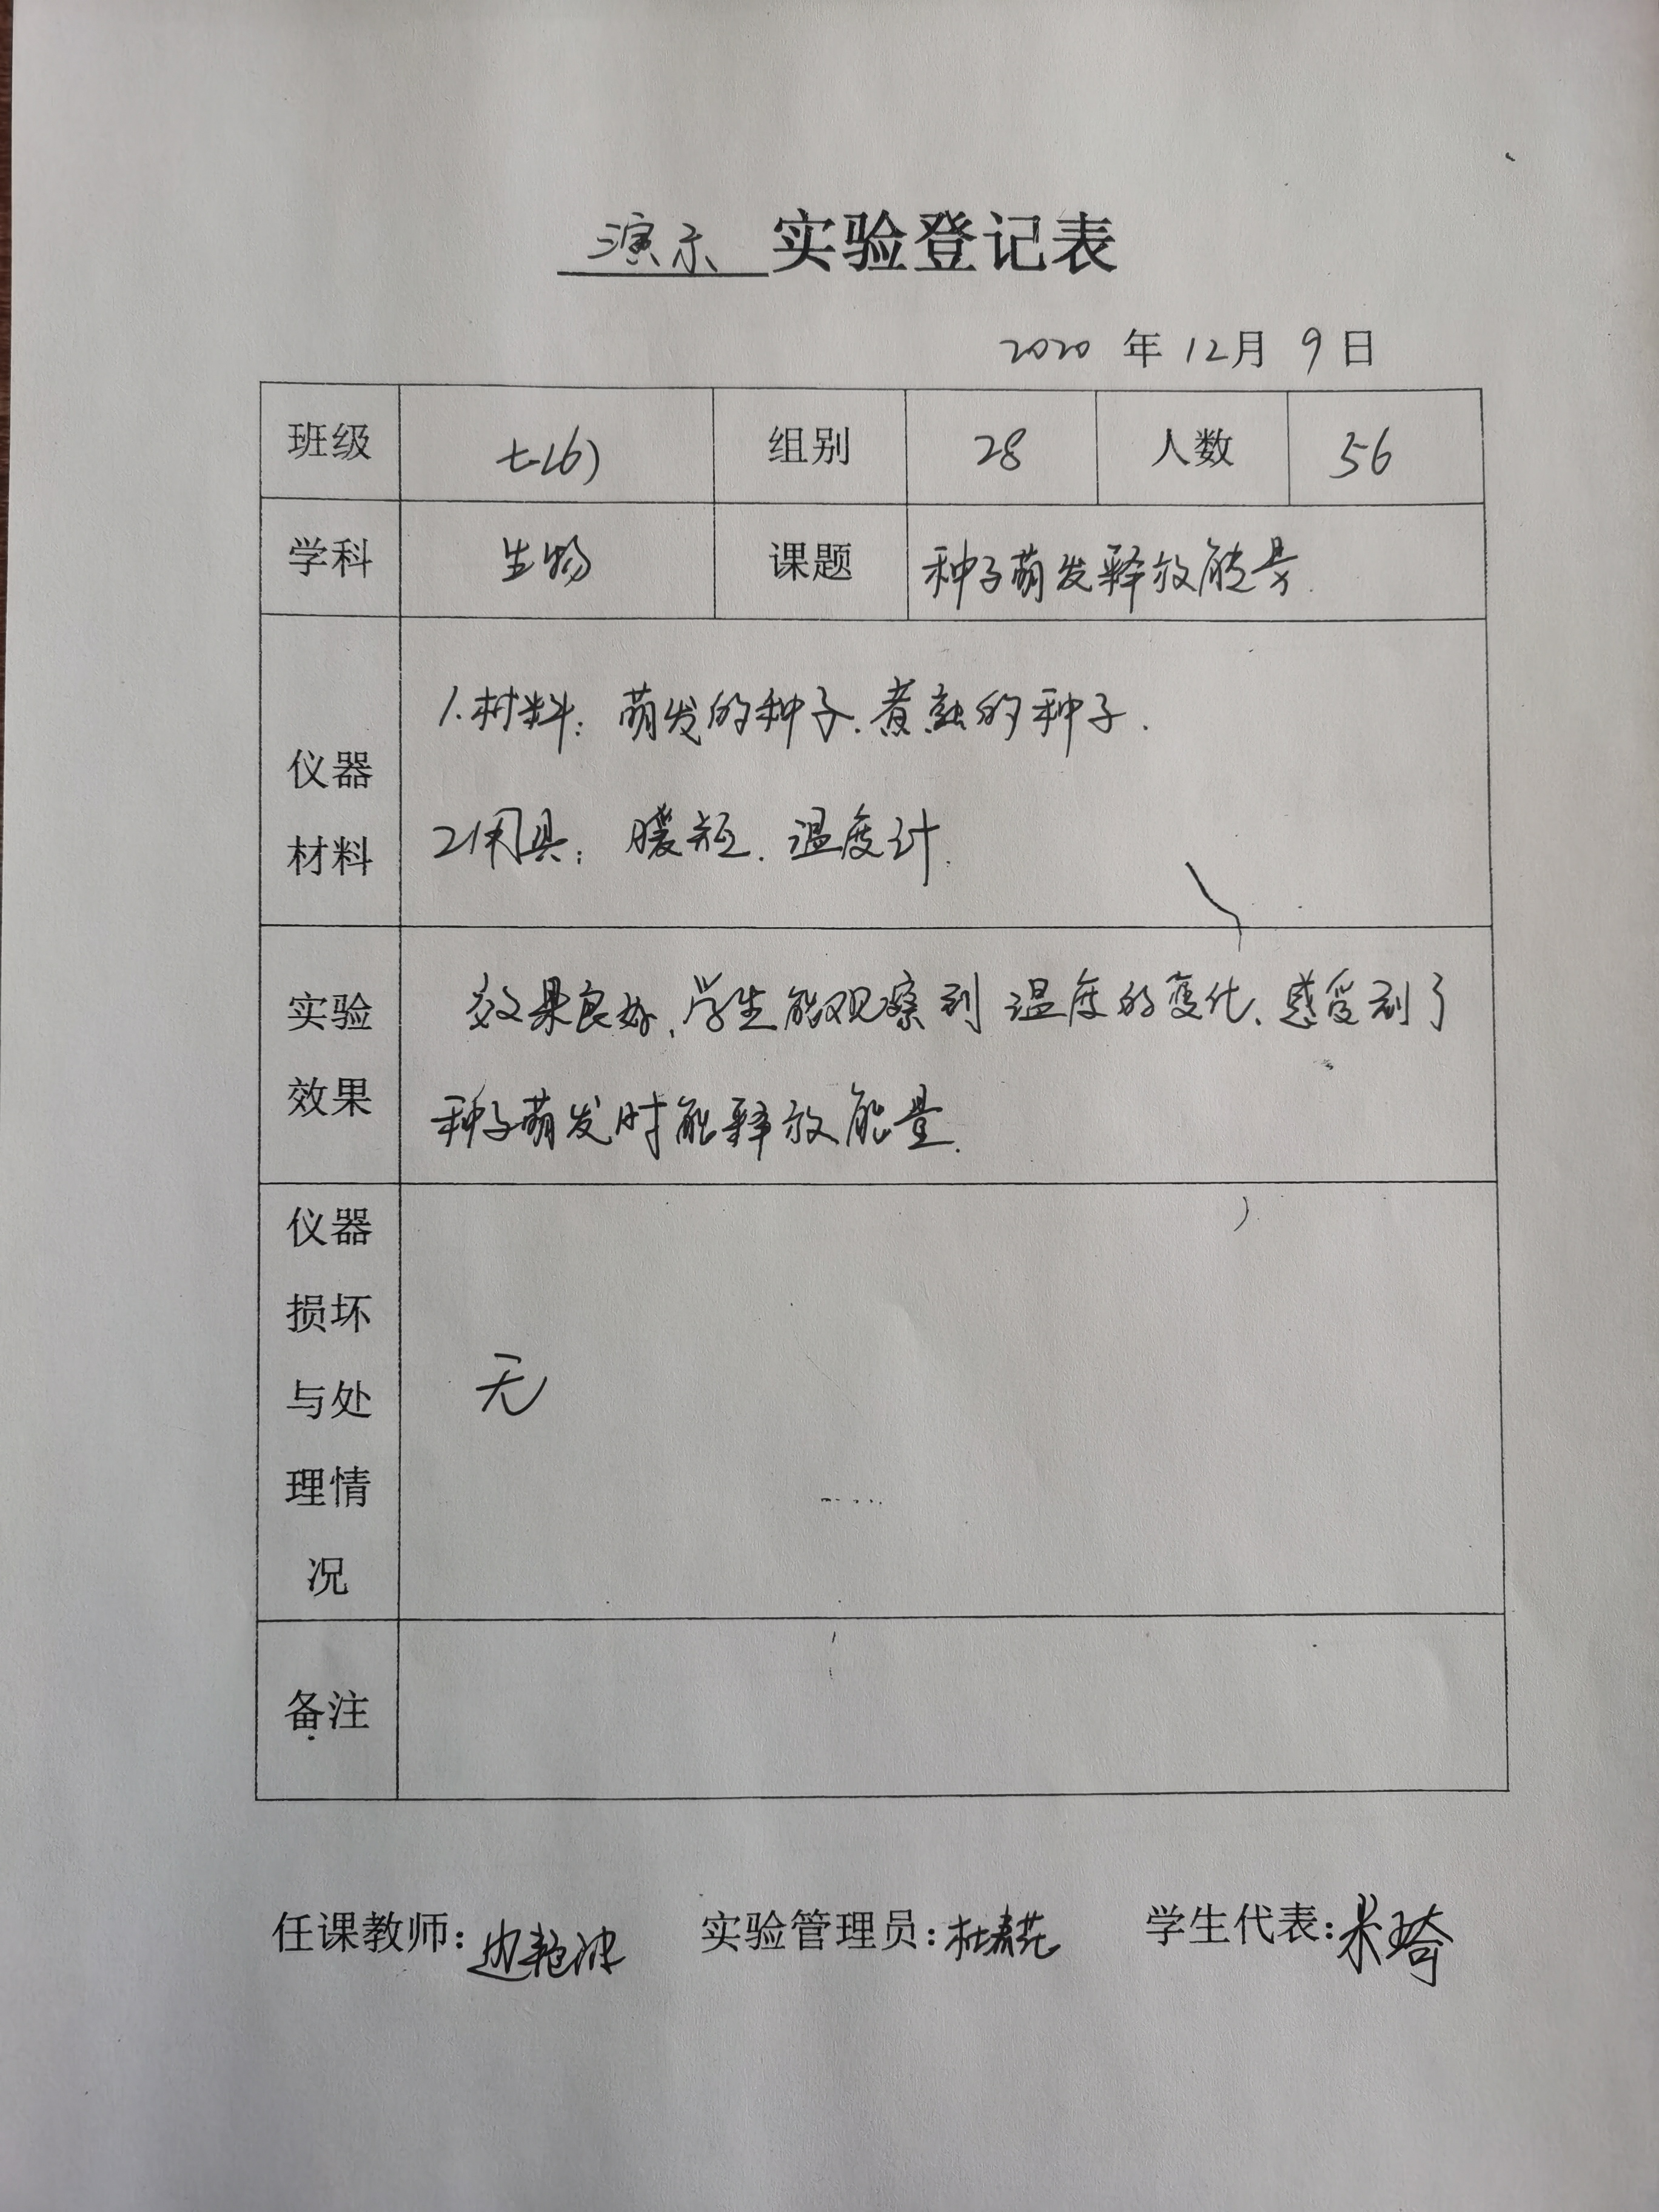 演示 实验登记表
2020 年 12月 9日
班级 七(6) 组别 28 人数 56
学科 生物 课题 种子萌发释放能量.
仪器
材料
1.材料: 萌发的种子.煮熟的种子.
2.用具: 暖瓶. 温度计.
实验
效果
效果良好,学生能观察到温度的变化、感受到了
种子萌发时能释放能量.
仪器
损坏
与处
理情
况
无
备注
任课教师: 实验管理员: 杜春花 学生代表: 米琦